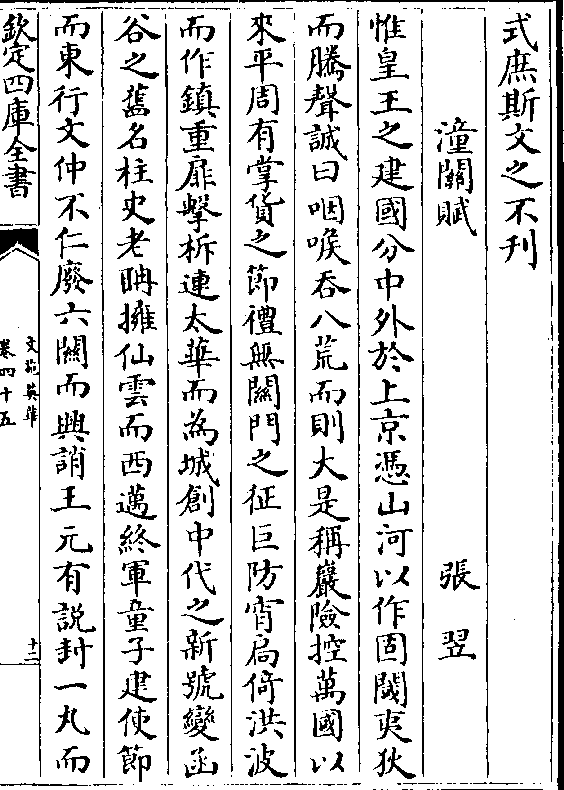 式庶斯文之不刊
潼關賦 張翌
惟皇王之建國分中外於上京憑山河以作固閾夷狄
而騰聲誠曰咽喉吞八荒而則大是稱巖險控萬國以
來平周有掌貨之節禮無關門之征巨防宵扃倚洪波
而作鎮重扉擊柝連太華而為城創中代之新號變函
谷之舊名柱史老聃擁仙雲而西邁終軍童子建使節
而東行文仲不仁廢六關而興誚王元有説封一丸而
欽定四庫全書
文苑英華
卷四十五
十二